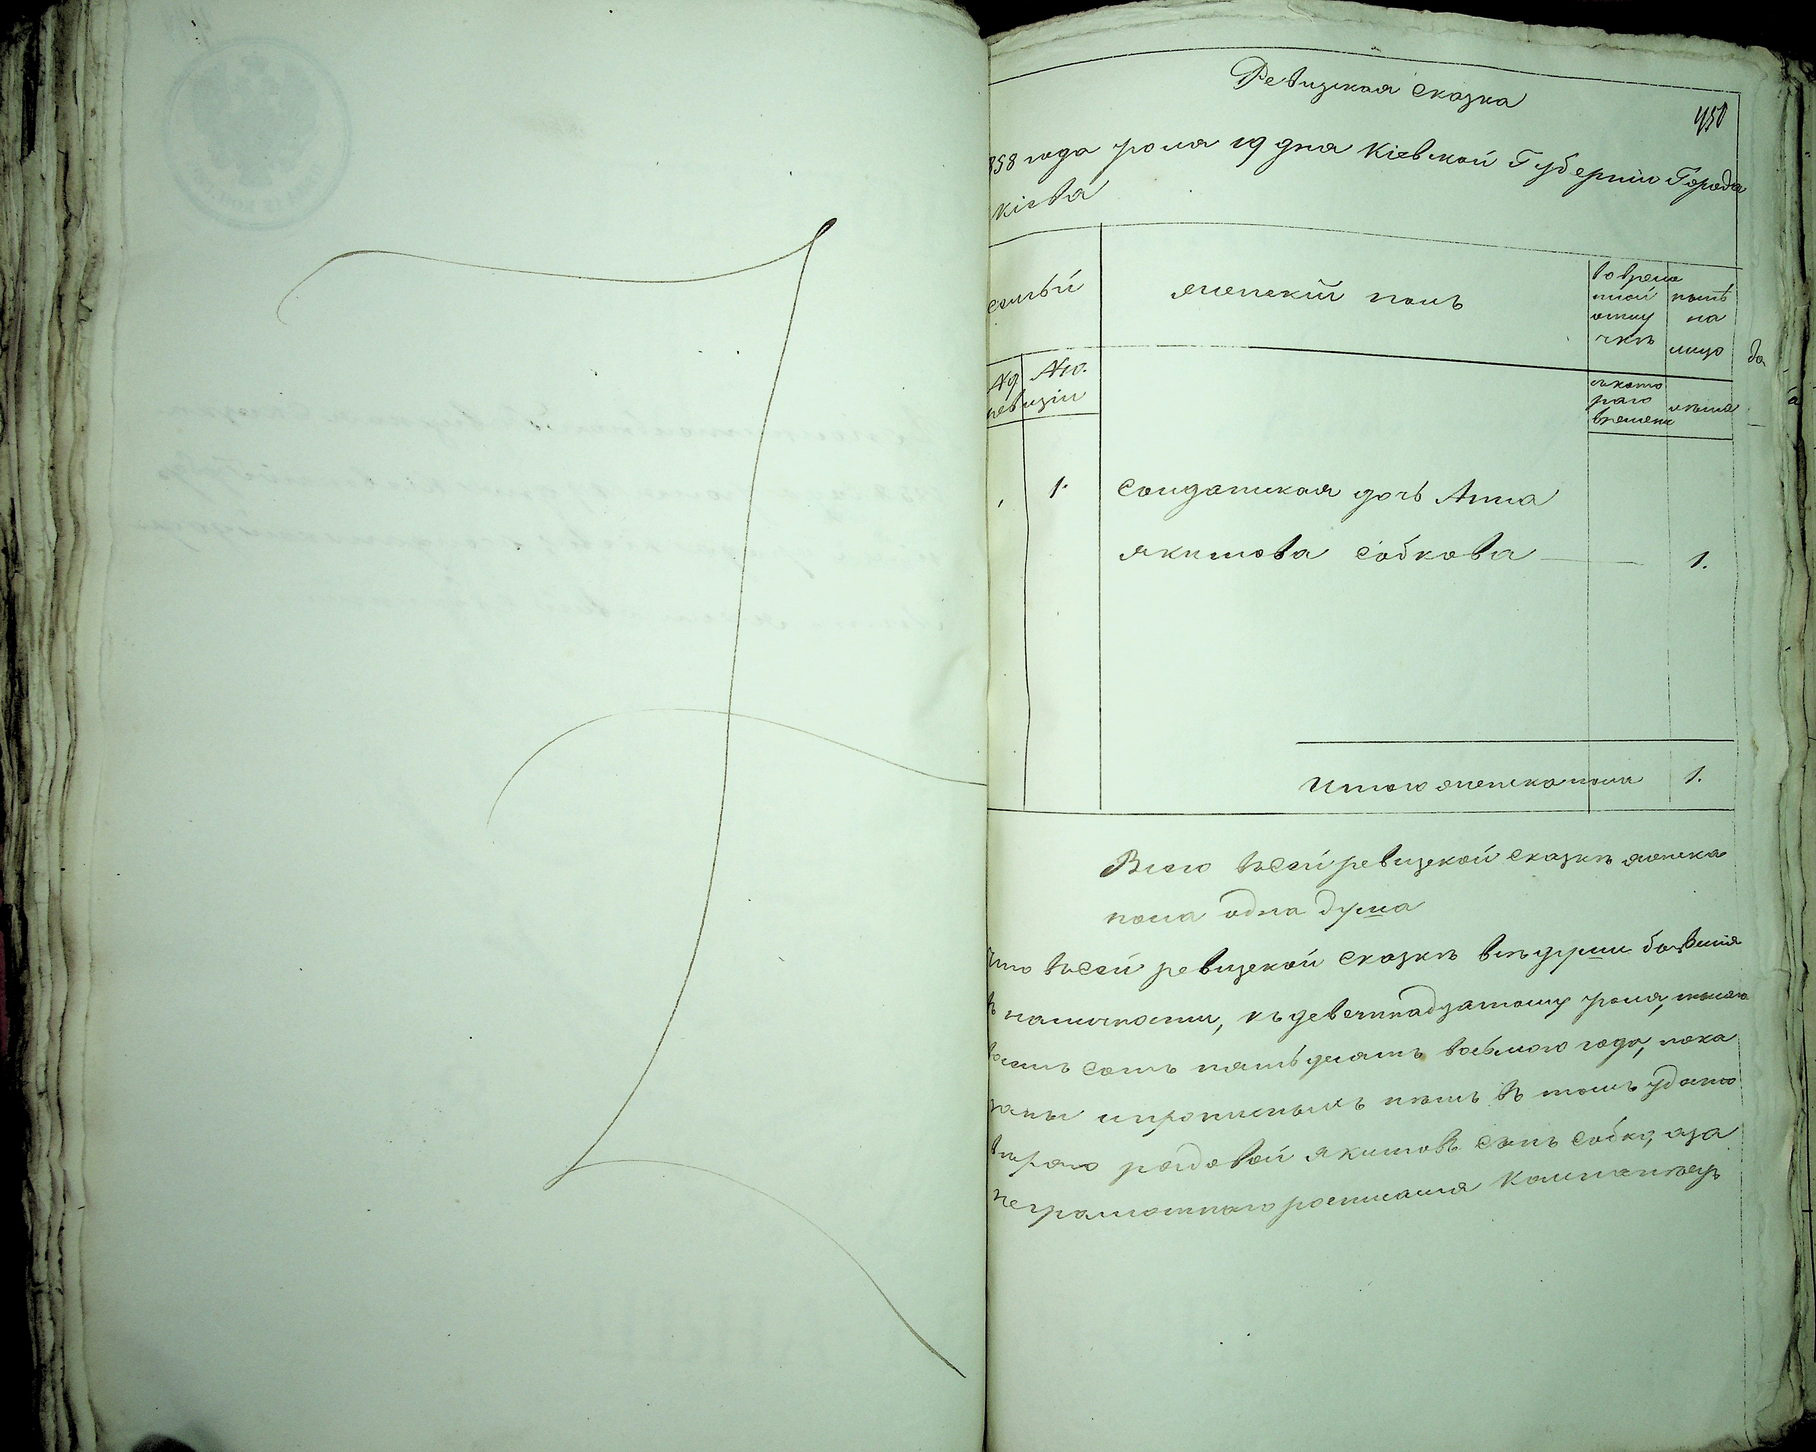 Ревизская Сказка
450
858 года Июля 19 дня Кіевской Губерніи Города
Кіева
семьи
женскій полъ
во време
нной
отлу
чкѣ
нынѣ
на
лицо
№ 9 № 10.
ревизіи
съ кото
раго
времени
лѣта
1. Солдатская дочь Анна
Якимова Собкова 1.
Итого женска пола 1.
Всего въ сей ревизской сказкѣ женска
пола одна душа
Что въ сей ревизской сказкѣ всѣ души бывшія
въ наличности, къ девятнадцатому Июля, тысяча
восемь сотъ пятьдесятъ восьмого года, пока
заны и прописныхъ нѣтъ въ томъ удосто
вѣряю рядовой Якимовъ сынъ Собко, а за
неграмотнаго росписался Компанѣец